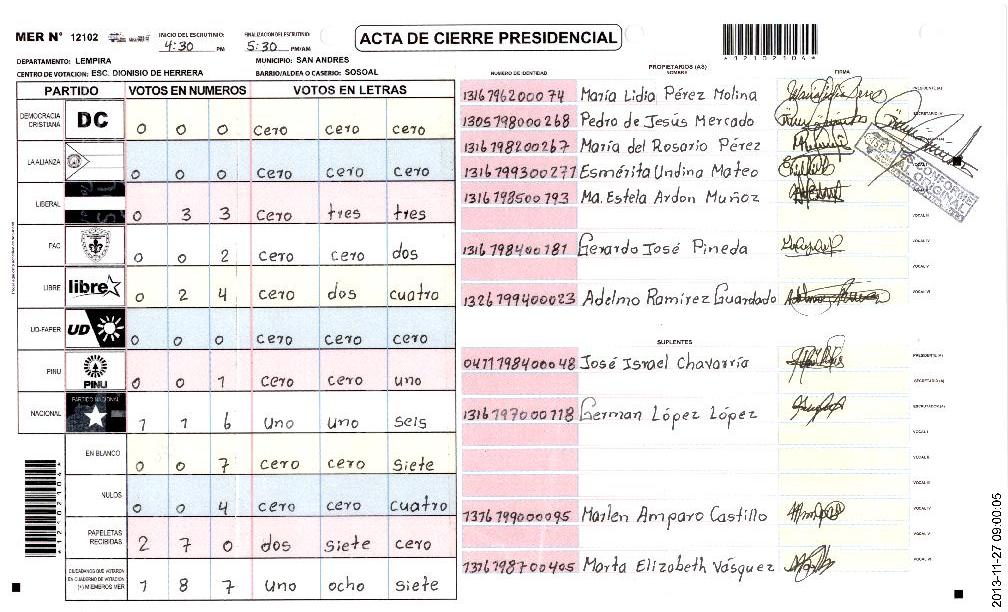 MER N° 12102
INICIO DEL ESCRUTINIO: 4:30 PM
FINALIZACION DEL ESCRUTINIO: 5:30 PM/AM
ACTA DE CIERRE PRESIDENCIAL
*1210210A*
DEPARTAMENTO: LEMPIRA
MUNICIPIO: SAN ANDRES
CENTRO DE VOTACION: ESC. DIONISIO DE HERRERA
BARRIO/ALDEA O CASERIO: SOSOAL
PARTIDO VOTOS EN NUMEROS VOTOS EN LETRAS
DEMOCRACIA CRISTIANA DC 0 0 0 cero cero cero
LA ALIANZA 0 0 0 cero cero cero
LIBERAL 0 3 3 cero tres tres
PAC 0 0 2 cero cero dos
LIBRE libre 0 2 4 cero dos cuatro
UD-FAPER UD 0 0 0 cero cero cero
PINU PINU 0 0 1 cero cero uno
NACIONAL PARTIDO NACIONAL 1 1 6 uno uno seis
EN BLANCO 0 0 7 cero cero siete
NULOS 0 0 4 cero cero cuatro
PAPELETAS RECIBIDAS 2 7 0 dos siete cero
CIUDADANOS QUE VOTARON EN CUADERNO DE VOTACION (+) MIEMBROS MER 1 8 7 uno ocho siete
PROPIETARIOS (AS)
NUMERO DE IDENTIDAD NOMBRE FIRMA
1316796200074 María Lidia Pérez Molina PRESIDENTE (A)
1305798000268 Pedro de Jesús Mercado SECRETARIO (A)
1316798200267 María del Rosario Pérez
1316799300277 Esmérita Undina Mateo VOCAL I
1316798500793 Ma. Estela Ardon Muñoz
VOCAL III
1316798400181 Gerardo José Pineda VOCAL IV
VOCAL V
1326799400023 Adelmo Ramírez Guardado VOCAL VI
CONFORME
ORIGINAL
SUPLENTES
0411798400048 José Israel Chavarría PRESIDENTE (A)
SECRETARIO (A)
1316797000118 German López López ESCRUTADOR (A)
VOCAL I
VOCAL II
VOCAL III
1316799000095 Marlen Amparo Castillo VOCAL IV
VOCAL V
1316798700405 Marta Elizabeth Vásquez VOCAL VI
2013-11-27 09:00:05